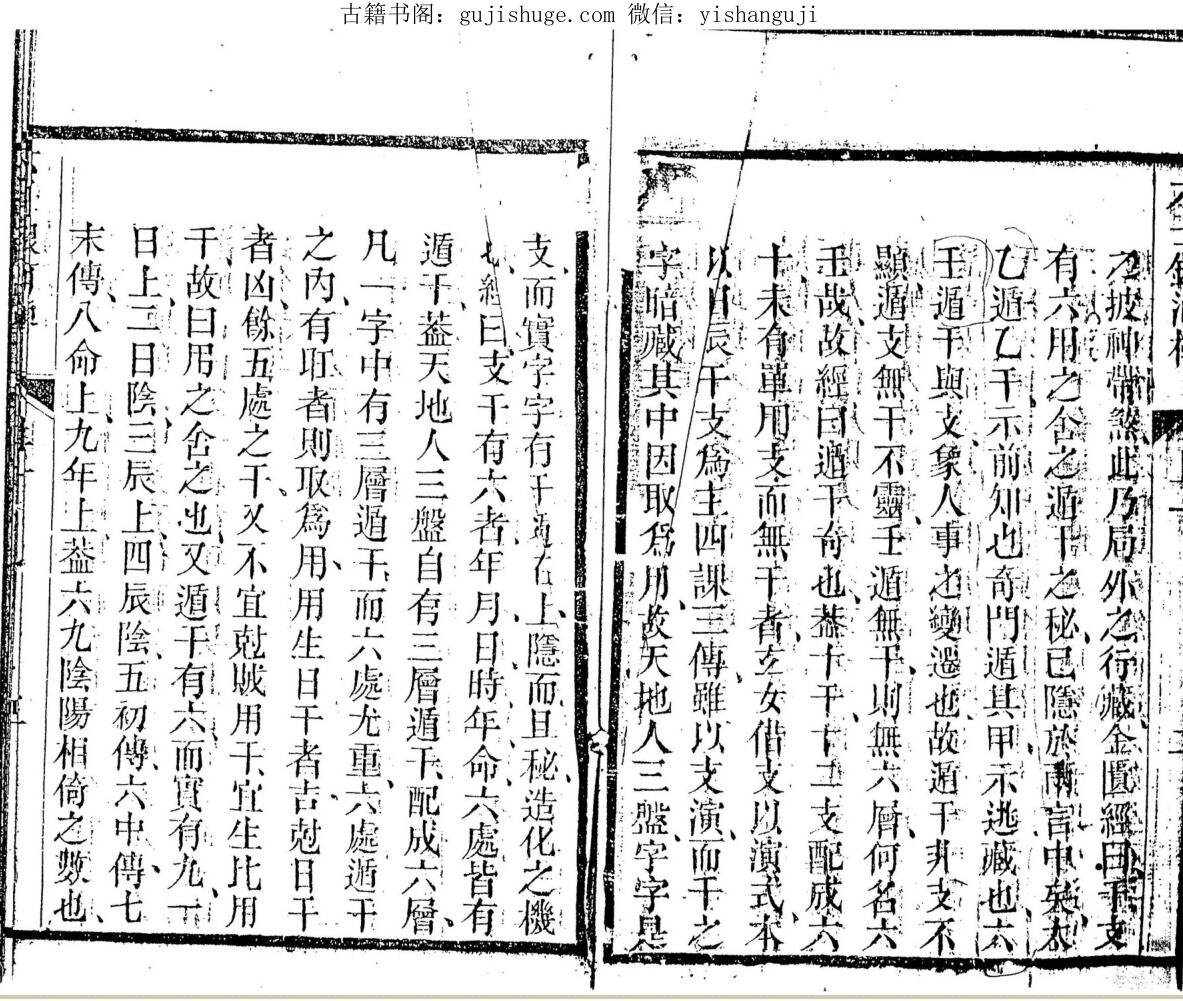 古籍书阁：gujishuge.com 微信：yishanguji
披神帶煞此乃局外之行藏金匱經曰干支
有六用之舍之遁干之秘已隱於兩言中矣太
乙遁乙干示前知也奇門遁其甲示逃藏也六
壬遁干與支象人事之變遷也故遁干非支不
顯遁支無干不靈壬遁無干則無六層何名六
壬哉故經曰遁干奇也蓋十干十二支配成六
十未有單用支而無干者玄女借支以演式本
以日辰干支爲主四課三傳雖以支演而干之
字暗藏其中因取爲用故天地人三盤字字是
支而實字字有干遁在上隱而且秘造化之機
也經曰支干有六者年月日時年命六處皆有
遁干蓋天地人三盤自有三層遁干配成六層
凡一字中有三層遁干而六處尤重六處遁干
之內有旺者則取爲用用生日干者吉尅日干
者凶餘五處之干又不宜尅賊用干宜生比用
干故曰用之舍之也又遁干有六而實有九一
日上二日陰三辰上四辰陰五初傳六中傳七
末傳八命上九年上蓋六九陰陽相倚之數也